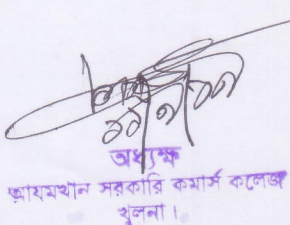 অধ্যক্ষ
আযমখান সরকারি কমার্স কলেজ
খুলনা।